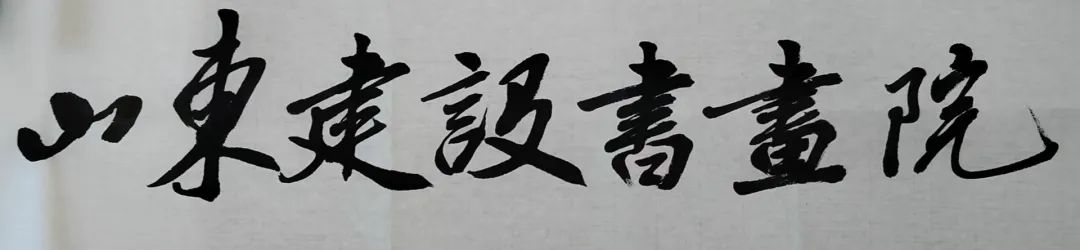 山東建設書畫院